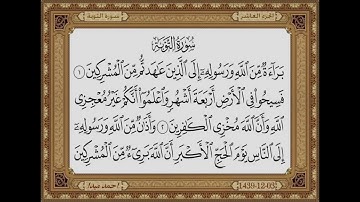 الجزء العاشر
سورة التوبة
سُورَةُ التَّوْبَةِ
بَرَاءَةٌ مِّنَ ٱللَّهِ وَرَسُولِهِۦٓ إِلَى ٱلَّذِينَ عَٰهَدتُّم مِّنَ ٱلْمُشْرِكِينَ ١
فَسِيحُوا۟ فِى ٱلْأَرْضِ أَرْبَعَةَ أَشْهُرٍ وَٱعْلَمُوٓا۟ أَنَّكُمْ غَيْرُ مُعْجِزِى
ٱللَّهِ وَأَنَّ ٱللَّهَ مُخْزِى ٱلْكَٰفِرِينَ ٢ وَأَذَٰنٌ مِّنَ ٱللَّهِ وَرَسُولِهِۦٓ
إِلَى ٱلنَّاسِ يَوْمَ ٱلْحَجِّ ٱلْأَكْبَرِ أَنَّ ٱللَّهَ بَرِىٓءٌ مِّنَ ٱلْمُشْرِكِينَ
1439-12-03